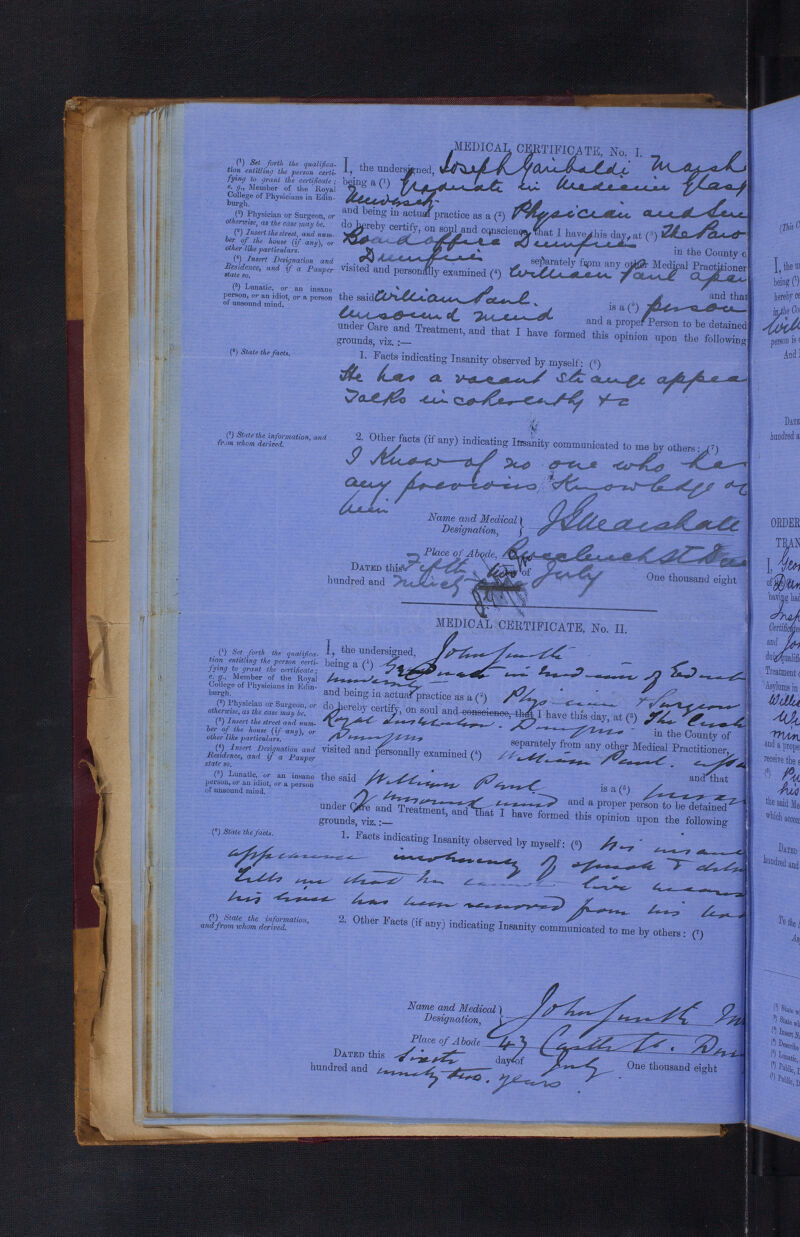 MEDICAL CERTIFICATE, No. I.
(1) Set forth the qualifica-
tion entitling the person certi-
fying to grant the certificate;
e. g., Member of the Royal
College of Physicians in Edin-
burgh.
(2) Physician or Surgeon, or
otherwise, as the case may be.
(3) Insert the street, and num-
ber of the house (if any), or
other like particulars.
(4) Insert Designation and
Residence, and if a Pauper
state so.
(5) Lunatic, or an insane
person, or an idiot, or a person
of unsound mind.
(6) State the facts.
(7) State the information, and
from whom derived.
I, the undersigned, Joseph Garibaldi Marsh
being a (1) Graduate in Medicine Glasg
University
and being in actual practice as a (2) Physician and Sur
do hereby certify, on soul and conscience, that I have this day, at (3) The Paro
Board office Dumfries in the County o
Dumfries separately from any other Medical Practitioner
visited and personally examined (4) William Paul a pau
and that
the said William Paul. is a (5) person
unsound mind and a proper Person to be detained
under Care and Treatment, and that I have formed this opinion upon the following
grounds, viz. :—
1. Facts indicating Insanity observed by myself: (6)
He has a vacant strange appea
Talks incoherently &c
2. Other facts (if any) indicating Insanity communicated to me by others: (7)
I know of no one who ha
any previous knowledge of
him
Name and Medical Designation, JG Marshall
Place of Abode, Buccleuch St Du
DATED this Fifth day of July One thousand eight
hundred and ninety two
MEDICAL CERTIFICATE, No. II.
(1) Set forth the qualifica-
tion entitling the person certi-
fying to grant the certificate;
e. g., Member of the Royal
College of Physicians in Edin-
burgh.
(2) Physician or Surgeon, or
otherwise, as the case may be.
(3) Insert the street and num-
ber of the house (if any), or
other like particulars.
(4) Insert Designation and
Residence, and if a Pauper
state so.
(5) Lunatic, or an insane
person, or an idiot, or a person
of unsound mind.
(6) State the facts.
(7) State the information,
and from whom derived.
I, the undersigned, John Smith
being a (1) Graduate in Medicine of Edinb
University
and being in actual practice as a (2) Physician & Surgeon
do hereby certify, on soul and conscience, that I have this day, at (3) The Crich
Royal Institution. Dumfries in the County of
Dumfries separately from any other Medical Practitioner,
visited and personally examined (4) William Paul.
and that
the said William Paul is a (5) person
of unsound mind and a proper person to be detained
under Care and Treatment, and that I have formed this opinion upon the following
grounds, viz. :—
1. Facts indicating Insanity observed by myself: (6) His insane
appearance incoherency of speech &
tells me that he cannot live because
his liver has been removed from his bod
2. Other Facts (if any) indicating Insanity communicated to me by others: (7)
Name and Medical Designation, John Smith M
Place of Abode 43 Castle St. Dum
DATED this Sixth day of July One thousand eight
hundred and ninety two. years
I, the u
being (1)
hereby ce
in the Co
Will
person is
And I
DATE
hundred a
ORDER
TRAN
I, Geo
of Dum
having had
Insp
Certificate
and Jo
Treatment
Asylums in
Willi
and a prope
receive the
his
the said Me
which accom
DATED
hundred and
To the